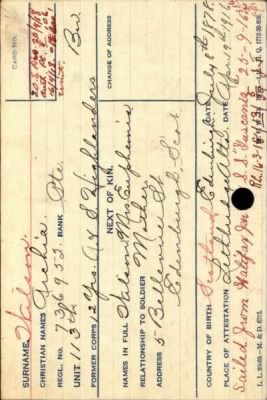 CARD NO.
SURNAME Wilson
CHRISTIAN NAMES Archie
REGL. NO. 736952 RANK Pte.
UNIT 113th Bn.
FORMER CORPS 12 yrs. A & S Highlanders
NEXT OF KIN.
CHANGE OF ADDRESS
NAMES IN FULL Wilson Mrs Euphemia
RELATIONSHIP TO SOLDIER Mother
ADDRESS 5 Bellevue St
Edinburgh, Scot
COUNTRY OF BIRTH Scotland Edinburgh DATE July 8th 1878
PLACE OF ATTESTATION Lethbridge Alta. DATE 1916
Sailed from Halifax per S.S. Tuscania 25-9-16
L. L. 90593—M. & D. 6712.